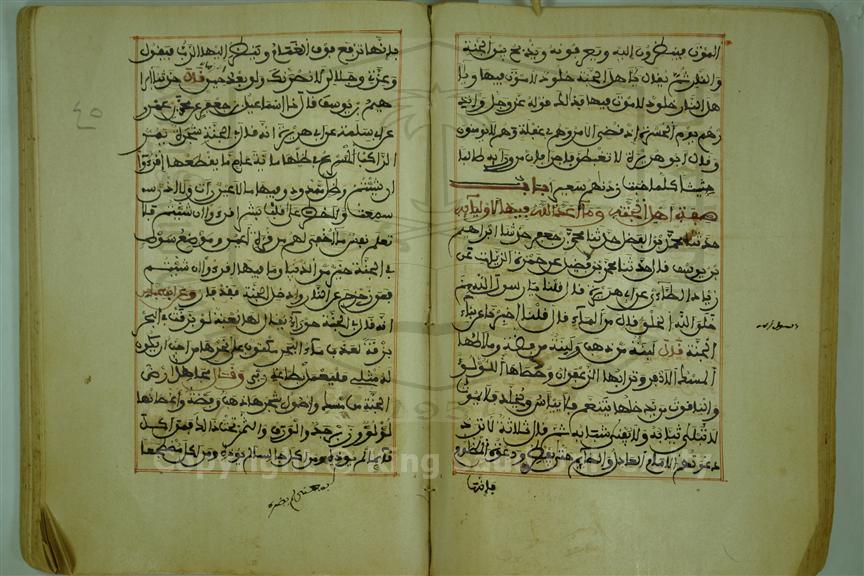 الموت فينظرون إليه ويعرفونه ويذبح بين الجنة
والنار ثم يقال يا هل الجنة خلود لا موت فيها ويا
هل النار خلود لا موت فيها فذلك قوله عز وجل وانذ
رهم يوم الحسرة اذ قضي الامر وهم في غفلة وهم لا يومنون
وقال ابو هريرة لا تغبطن فاجرا فان من ورايه طالبا
حثيثا كلما خبت زدناهم سعيرا باب
صفة اهل الجنة وما اعد الله فيها لاوليايه
حدثنا محمد بن الفضل حدثنا محمد بن جعفر حدثنا ابراهيم
بن يوسف قال حدثنا محمد بن فضيل عن حمزة الزيات عن
زياد الطائي عن ابي هريرة قال قلنا يا رسول الله مم
خلق الله الخلق قال من الماء قال قلنا اخبرنا عن بناء
الجنة قال لبنة من ذهب ولبنة من فضة وملاطها
المسك الاذفر وترابها الزعفران وحصاها اللؤلؤ
والياقوت من يدخلها ينعم فلا يياس ويخلد فلا يموت
لا تبلى ثيابه ولا يفنى شبابه ثم قال ثلاثة لا ترد
دعوتهم الامام العادل والصايم حتى يفطر ودعوة المظلوم
فإنها
فإنها ترفع فوق الغمام وينظر اليها الرب فيقول
وعزتي وجلالي لانصرنك ولو بعد حين قال حدثنا ابرا
هيم بن يوسف قال اخبرنا اسماعيل بن جعفر عن محمد بن عمرو
عن ابي سلمة عن ابي هريرة انه قال ان في الجنة شجرة يسير
الراكب المسرع في ظلها ماية عام ما يقطعها اقرءوا
ان شيتم وظل ممدود وفيها ما لا عين رات ولا اذن سـ
سمعت ولا خطر على قلب بشر اقرءوا ان شيتم فلا
تعلم نفس ما اخفي لهم من قرة اعين وموضع سوط
في الجنة خير من الدنيا وما فيها اقرءوا ان شيتم
فمن زحزح عن النار وادخل الجنة فقد فاز وعن ابن عباس
انه قال ان في الجنة حوراء يقال لها لعبة لو بزقت في البحر
بزقة لعذب ماء البحر مكتوب على نحرها من احب ان يكون
له مثلي فليعمل بطاعة ربي وقال مجاهد ارض
الجنة من مسك واصول شجرها ذهب وفضة واغصانها
لؤلؤ وزبرجد والورق والثمر تحت ذلك فمن اكل
قايما لم يوذه ومن اكل جالسا لم يوذه ومن اكل مضطجعا
Copyright © King Saud University
1957